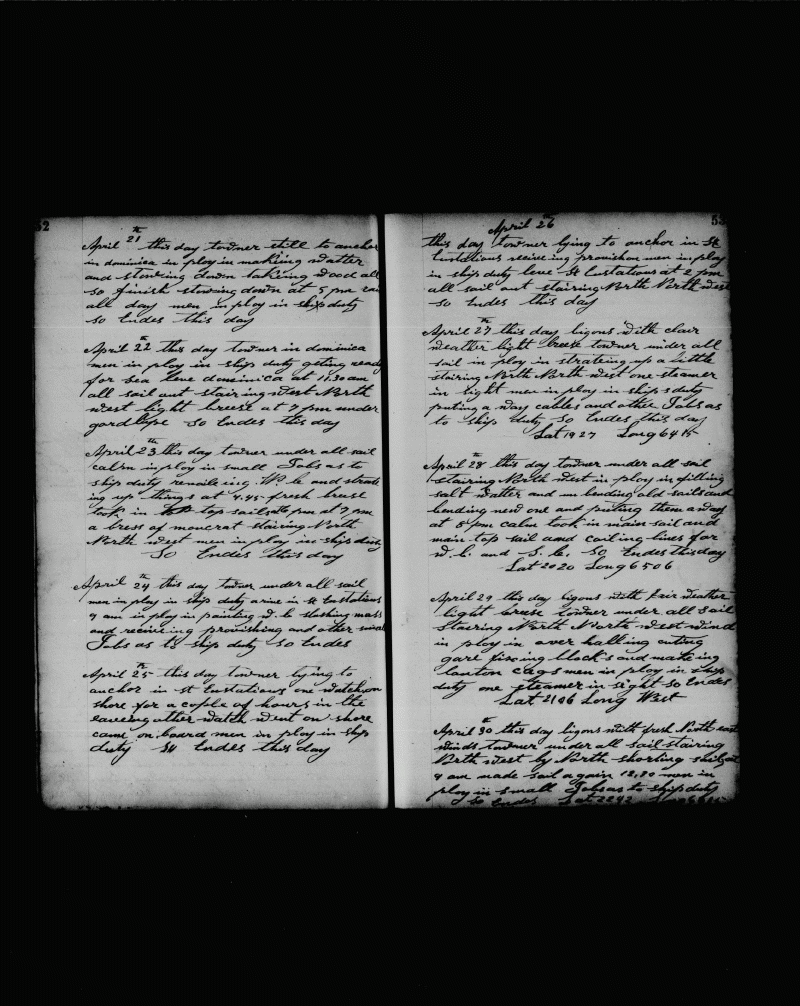 52
April 21th this day towner still to anchor
in dominica in ploy in making watter
and stowing down taking wood all
so finish stowing down at 5 pm
all day men in ploy in ship duty
so Endes this day
April 22th this day towner in dominica
men in ploy in ship duty geting ready
for sea leve dominica at 11.30 am
all sail out stairing West North
West light breese at 7 pm under
gard lope So Endes this day
April 23th this day towner under all sail
calm in ploy in small Jobs as to
ship duty W. b. and
ing up things at 4.45 fresh breese
took in top sail pm at 7 pm
a bress of moncrat stairing North
North West men in ploy in ships duty
So Endes this day
April 24th this day towner under all sail
men in ploy in ship duty arive in St Eustatious
9 am in ploy in painting W. b slushing mast
and receiveing provishing and other small
Jobs as to ship duty so Endes
April 25th this day towner lying to
anchor in St Eustatious one watch on
shore for a cople of hours in the
eaveing other watch went on shore
came on board men in ploy in ship
duty So Endes this day
53
April 26th
this day towner lying to anchor in St
Eustatious receiveing provishon men in ploy
in ship duty leve St Eustatious at 2 pm
all sail out stairing North North West
so Endes this day
April 27th this day bigons with clair
weather light breese towner under all
sail in ploy in strateing up a little
stairing North North West one steamer
in sight men in ploy in ships duty
puting a way cables and other Jobs as
to ship duty so Endes this day
Lat 19 27 Long 64 15
April 28th this day towner under all sail
stairing North West in ploy in filling
salt watter and un bending old sails and
bending new one and puting them away
at 5 pm calm took in main sail and
main top sail and coiling lines for
W. b. and S. b. So Endes this day
Lat 20 20 Long 65 06
April 29 this day bigons with fair weather
light breese towner under all sail
stairing North North West wind
in ploy in over halling cuting
gare fixing blocks and makeing
lanton cags men in ploy in ship
duty one steamer in sight so Endes
Lat 21 06 Long West
April 30th this day bigons with fresh North east
winds towner under all sail stairing
North West by North shorting sail at
9 am made sail again 12.30 men in
ploy in small Jobs as to ship duty
so Endes Lat 22 42 Long